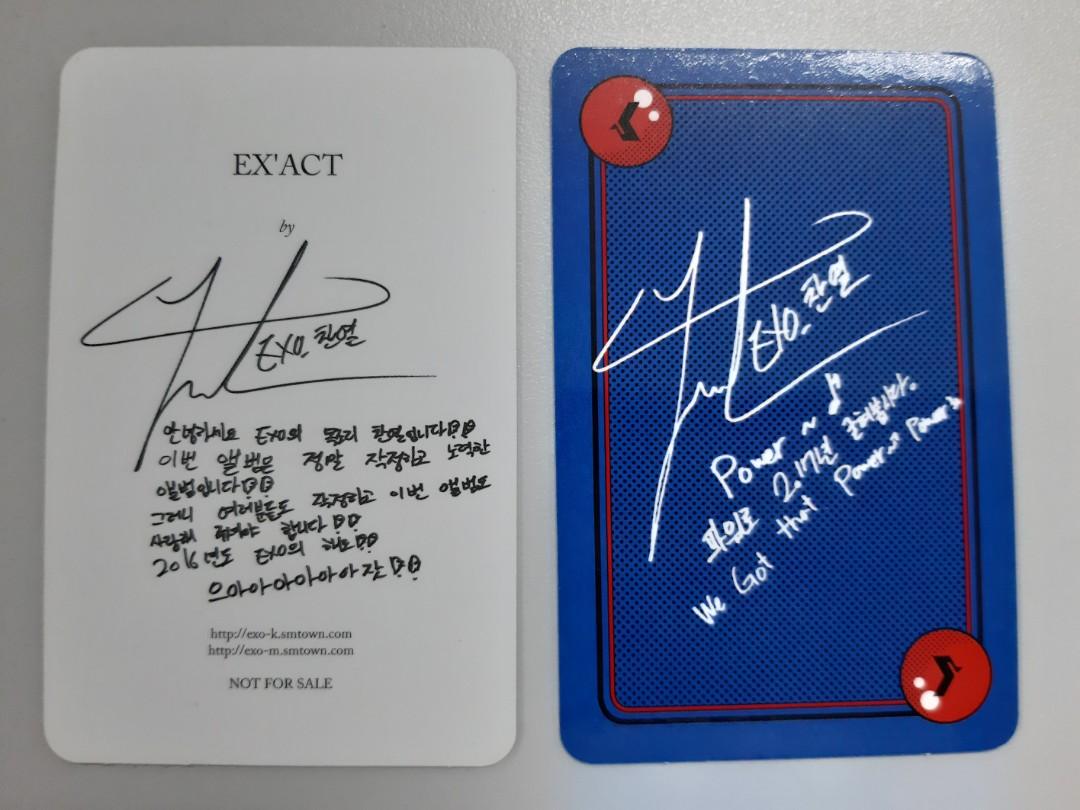 EX'ACT
by
EXO. 찬열
안녕하세요 EXO의 찬열입니다!!
이번 앨범은 정말 작정하고 노력한
앨범입니다!!
그러니 여러분들도 작정하고 이번 앨범도
사랑해 합니다!!
2016년도 EXO의 해!!
으아아아아아아잣!!
http://exo-k.smtown.com
http://exo-m.smtown.com
NOT FOR SALE
EXO. 찬열
Power ~ ♪
파워로 2017년
We Got that Power Power